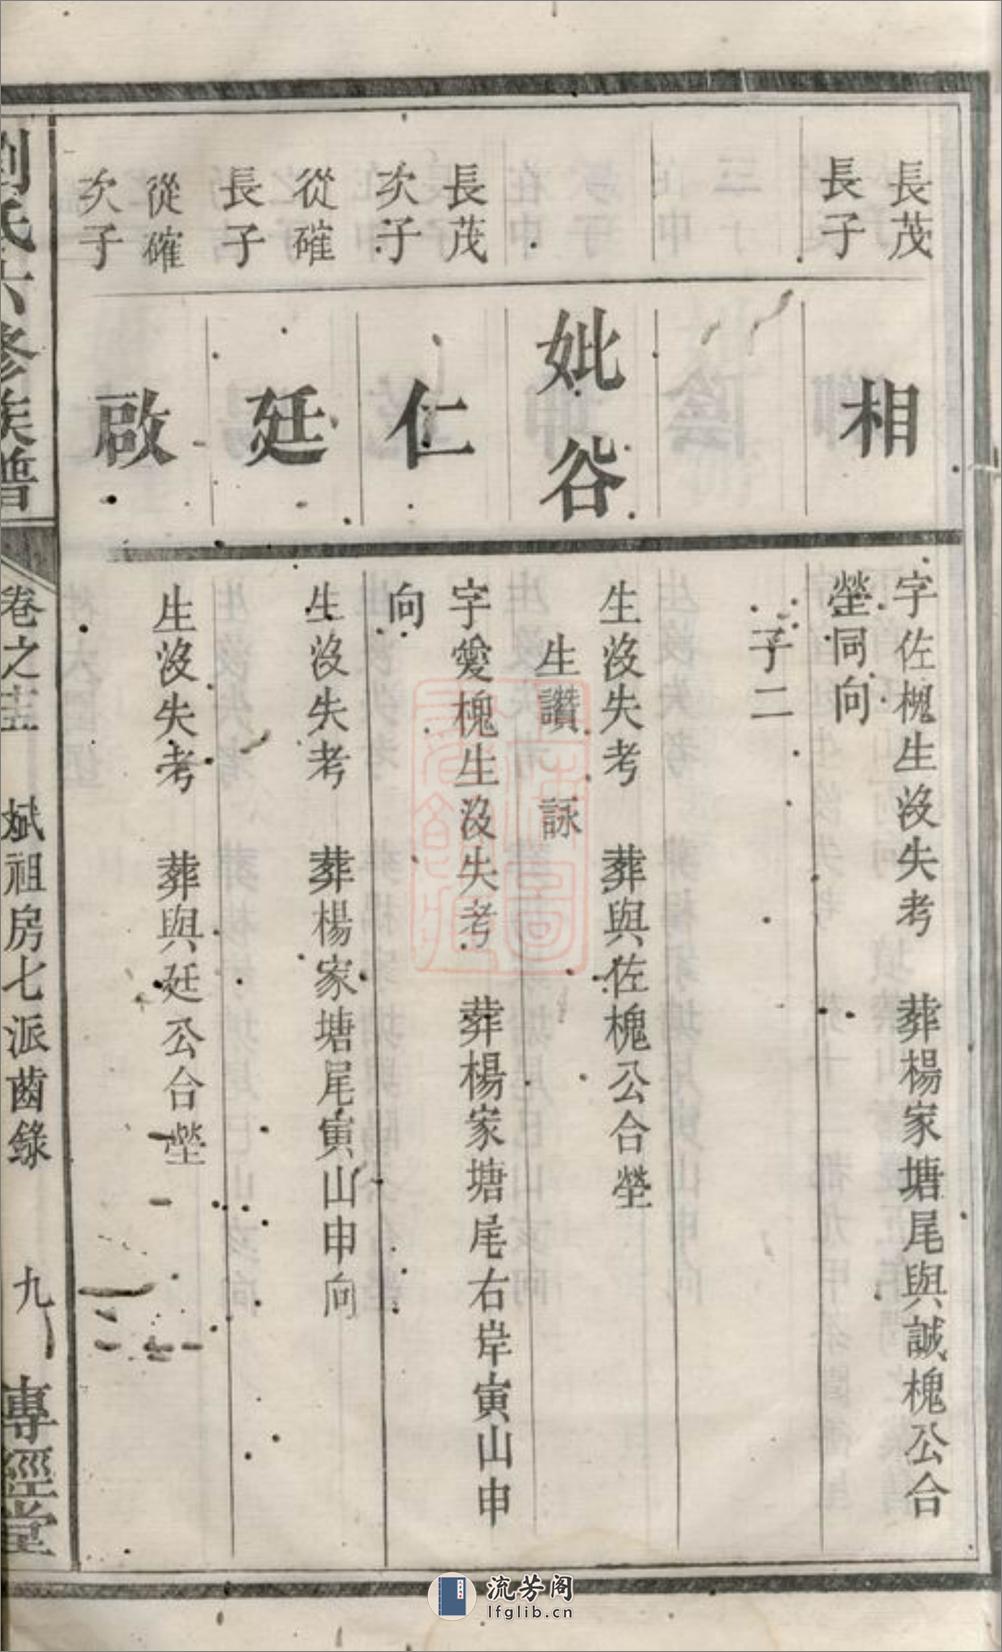 長茂
長子
相
字佐槐生沒失考　葬楊家塘尾與誠槐公合
塋同向
子二
妣谷
生沒失考　葬與佐槐公合塋
生讚　詠
長茂
次子
仁
字愛槐生沒失考　葬楊家塘尾右岸寅山申
向
從確
長子
廷
生沒失考　葬楊家塘尾寅山申向
從確
次子
啟
生沒失考　葬與廷公合塋
劉氏六修族譜
卷之十三　斌祖房七派齒錄　九　專經堂
流芳阁
lfglib.cn